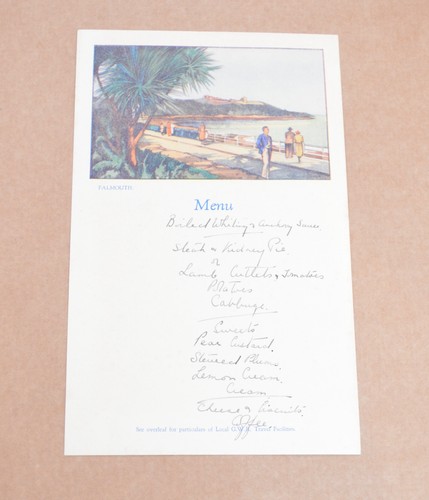 FALMOUTH
Menu
Boiled Whiting & Anchovy Sauce
Steak & Kidney Pie
or
Lamb Cutlets & Tomatoes
Potatoes
Cabbage
Sweets
Pear Custard
Stewed Plums
Lemon Cream
Cream
Cheese & Biscuits
Coffee
See overleaf for particulars of Local G.W.R. Travel Facilities.